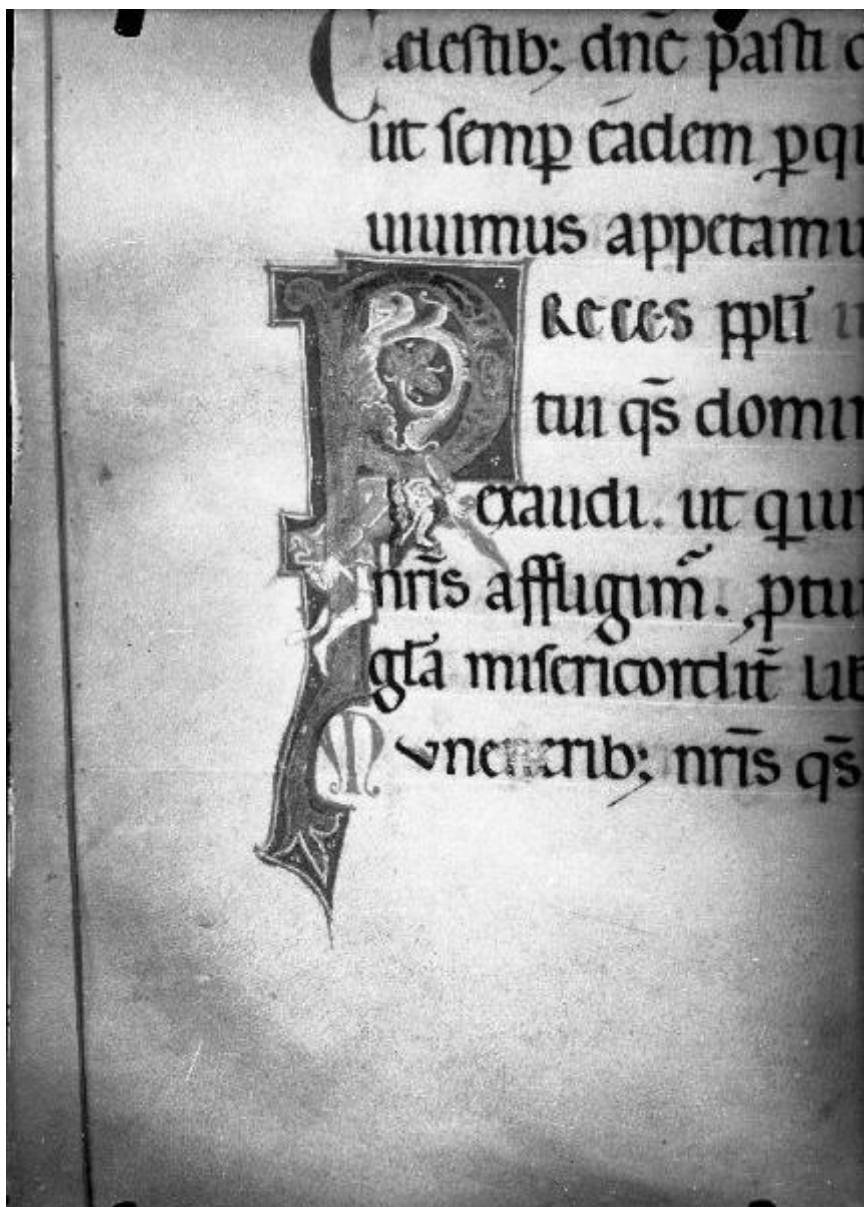 Cælestib; dnē pasti
ut semp̱ eadem p̱qu
uiuimus appetamu
PReces ppłi
tui qs̄ domin
exaudi. ut qui
nr̄is affligim̄. ptui
gła misericordit̄ lib
Muneerib; nr̄is qs̄